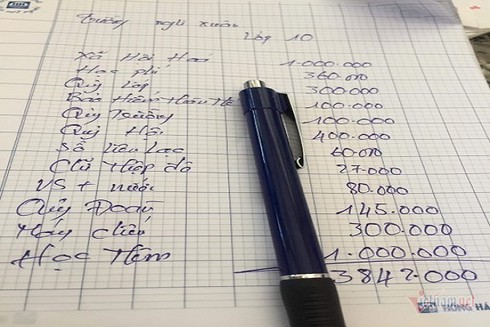 trường nghi xuân
Lớp 10
Xã Hội Hoá 1.000.000
Học phí 360.000
Quỹ lớp 300.000
Bảo Hiểm thân thể 100.000
Quỹ trường 100.000
Quỹ Hội 400.000
Sổ liên lạc 60.000
Chữ thập đỏ 27.000
VS + nước 80.000
Quỹ Đoàn 145.000
Máy chiếu 300.000
Học thêm 1.000.000
3872.000
HỒNG HÀ